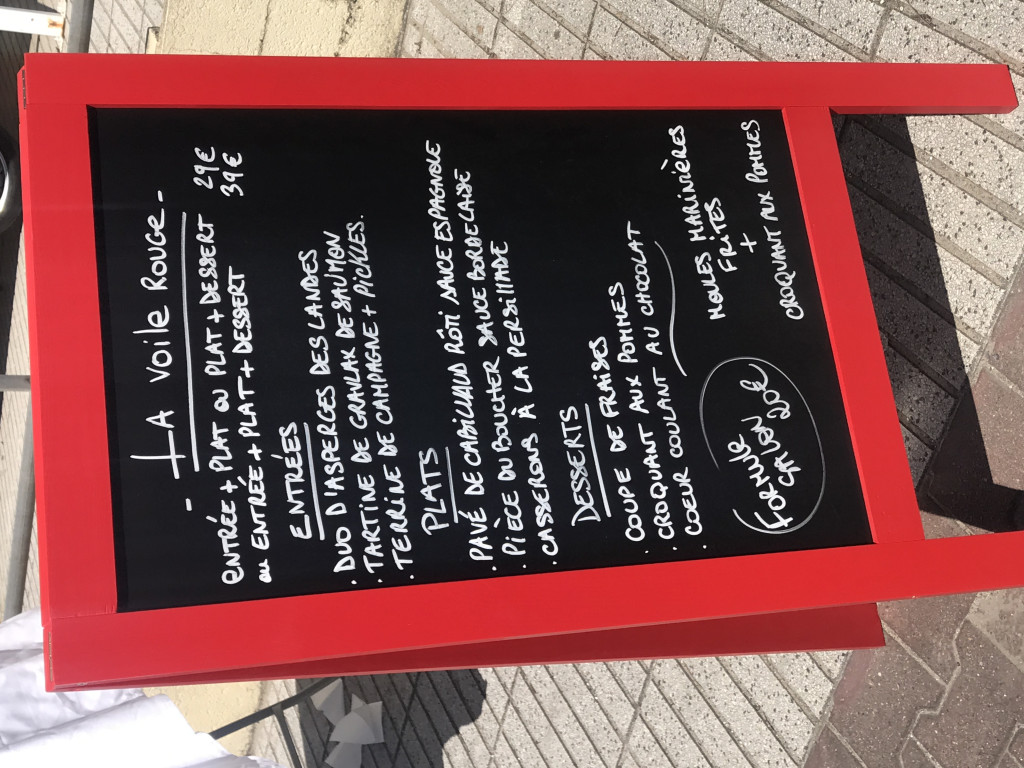 - LA VOILE ROUGE -
ENTRÉE + PLAT OU PLAT + DESSERT 29€
ou ENTRÉE + PLAT + DESSERT 39€
ENTRÉES
. DUO D'ASPERGES DES LANDES
. TARTINE DE GRAVLAX DE SAUMON
. TERRINE DE CAMPAGNE + PICKLES.
PLATS
. PAVÉ DE CABILLAUD RÔTI SAUCE ESPAGNOLE
. PIÈCE DU BOUCHER SAUCE BORDELAISE
. CASSERONS À LA PERSILLADE
DESSERTS
. COUPE DE FRAISES
. CROQUANT AUX POMMES
. COEUR COULANT AU CHOCOLAT
FORMULE
20€
MOULES MARINIÈRES
FRITES
+
CROQUANT AUX POMMES